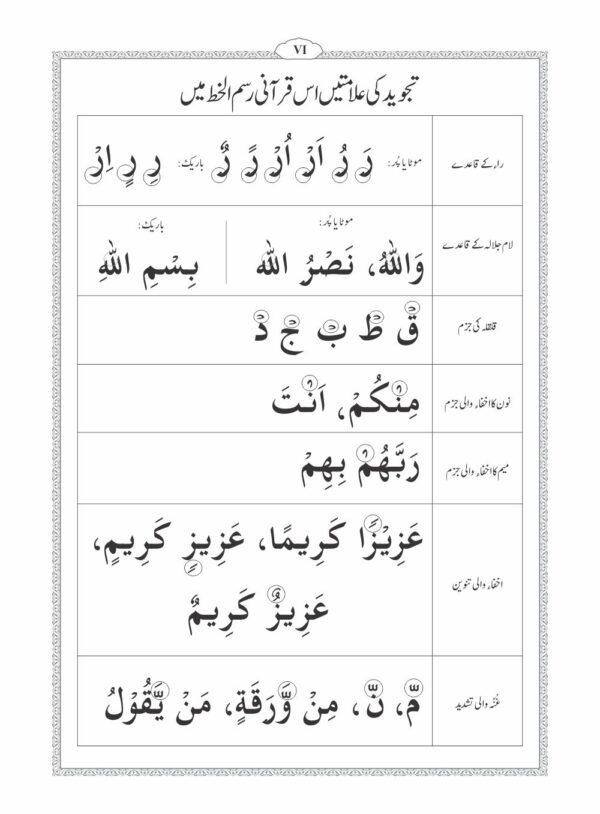 VI
تجوید کی علامتیں اس قرآنی رسم الخط میں
راء کے قاعدے
موٹا یا پُر: رَ رُ اَرْ اُرْ رً رٌ باریک: رِ رٍ اِرْ
لام جلالہ کے قاعدے
موٹا یا پُر: باریک:
وَاللّٰهُ، نَصْرُ اللّٰه بِسْمِ اللّٰهِ
قلقلہ کی جزم
قْ طْ بْ جْ دْ
نون کا اخفاء والی جزم
مِنْكُمْ، اَنْتَ
میم کا اخفاء والی جزم
رَبَّهُمْ بِهِمْ
اخفاء والی تنوین
عَزِيْزًا كَرِيمًا، عَزِيزٍ كَرِيمٍ،
عَزِيزٌ كَرِيمٌ
غُنّہ والی تشدید
مّ، نّ، مِنْ وَّرَقَةٍ، مَنْ يَّقُوْلُ